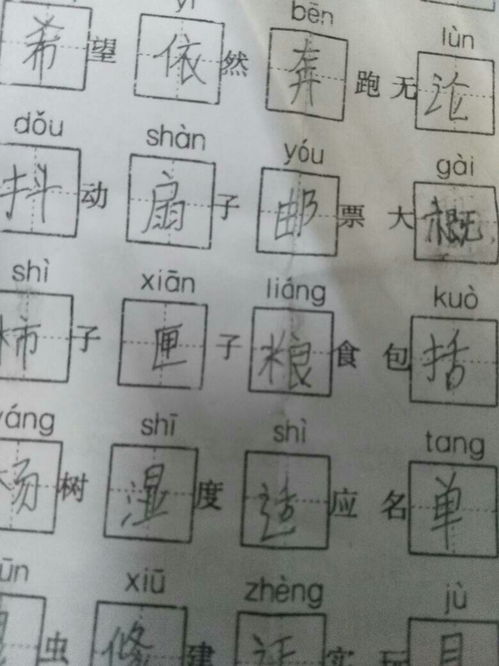 yī bēn lùn
希望 依然 奔跑 无论
dǒu shàn yóu gài
抖动 扇子 邮票 大概
shì xiān liáng kuò
柿子 匣子 粮食 包括
yáng shī shì tang
杨树 湿度 适应 名单
ūn xiū zhèng jù
虫 修建 证实 玩具